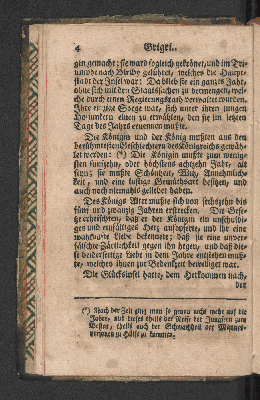 4 Grigri.
gin gemacht; sie ward sogleich gekrönet, und im Tri-
umphe nach Biribi geführet, welches die Haupt-
stadt der Insel war: Da blieb sie ein ganzes Jahr,
ohne sich mit den Staatssachen zu vermengen, wel-
che durch einen Regierungsrath verwaltet wurden.
Ihre einzige Sorge war, sich unter ihren jungen
einen zu erwählten, den sie im letzten
Tage des Jahrs ernennen mußte.
Die Königin und der König mußten aus den
berühmtesten Geschlechtern des Königreichs gewäh-
let werden: (*) Die Königin mußte zum wenig-
sten funfzehn, oder höchstens achtzehn Jahr, alt
seyn; sie mußte Schönheit, Witz, Annehmlich-
keit, und eine lustige Gemüthsart besitzen, und
auch noch niemahls geliebet haben.
Des Königs Alter mußte sich von sechszehn bis
fünf und zwanzig Jahren erstrecken. Die Gese-
tze erheischten, daß er der Königin ein unschuldi-
ges und einfältiges Herz aufopferte, und ihr eine
wahrhafte Liebe bekennete; daß sie eine unver-
fälschte Zärtlichkeit gegen ihn hegte, und daß die-
se beiderseitige Liebe in dem Jahre entstehen muß-
te, welches ihnen zur Bedenkzeit bewilliget war.
Die Glücksinsel hatte, dem Herkommen nach,
der
(*) Nach der Zeit ging man so genau nicht mehr auf die
Jahre, und dieses theils der Reise der Jungfern zum
Besten, theils auch der Schwachheit der Manns-
personen zu Hülfe zu kommen.